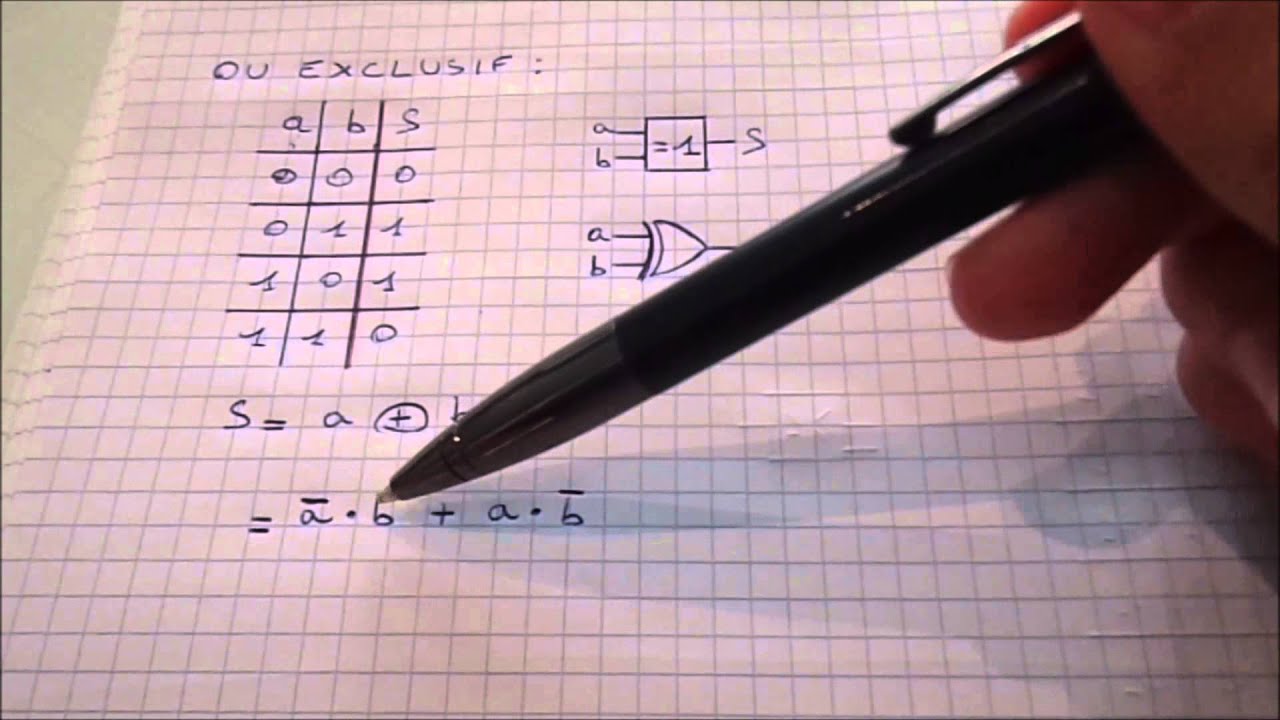 OU EXCLUSIF :
a b S
0 0 0
0 1 1
1 0 1
1 1 0
a
b
=1 S
a
b
S = a ⊕ b
= a̅ · b + a · b̅